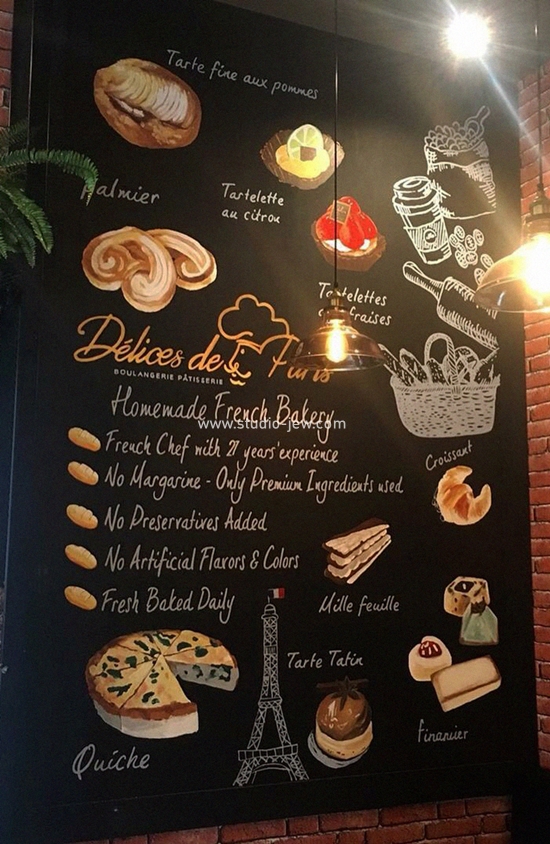 Tarte fine aux pommes
Palmier
Tartelette
au citron
Tartelettes
fraises
Délices de Paris
BOULANGERIE PÂTISSERIE
Homemade French Bakery
www.studio-jew.com
French Chef with 21 years'experience
No Margarine - Only Premium Ingredients used
No Preservatives Added
No Artificial Flavors & Colors
Fresh Baked Daily
Croissant
Mille feuille
Tarte Tatin
Quiche
financier